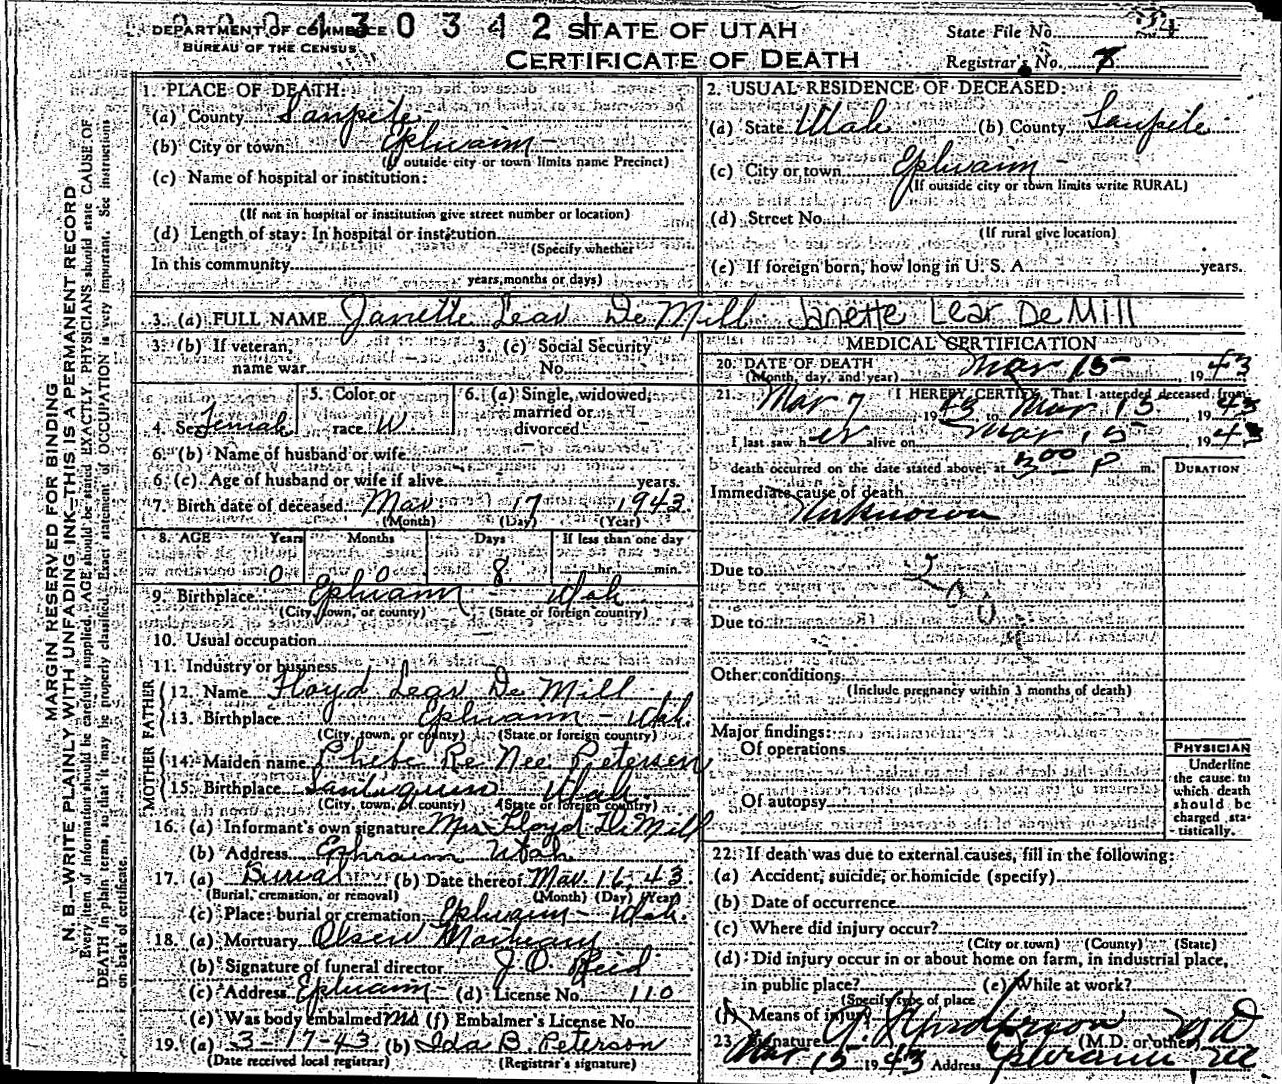 DEPARTMENT OF COMMERCE
BUREAU OF THE CENSUS
0004303421
STATE OF UTAH
CERTIFICATE OF DEATH
State File No. 24
Registrar's No. 8
MARGIN RESERVED FOR BINDING
N. B.—WRITE PLAINLY WITH UNFADING INK—THIS IS A PERMANENT RECORD
Every item of information should be carefully supplied. AGE should be stated EXACTLY. PHYSICIANS should state CAUSE OF
DEATH in plain terms, so that it may be properly classified. Exact statement of OCCUPATION is very important. See instructions
on back of certificate.
1. PLACE OF DEATH:
(a) County Sanpete
(b) City or town Ephraim -
(If outside city or town limits name Precinct)
(c) Name of hospital or institution:
(If not in hospital or institution give street number or location)
(d) Length of stay: In hospital or institution
(Specify whether
In this community
years, months or days)
2. USUAL RESIDENCE OF DECEASED:
(a) State Utah (b) County Sanpete
(c) City or town Ephraim -
(If outside city or town limits write RURAL)
(d) Street No.
(If rural give location)
(e) If foreign born, how long in U. S. A. years.
3. (a) FULL NAME Janette Lear De Mill Janette Lear DeMill
3. (b) If veteran, name war
3. (c) Social Security No.
4. Sex Female
5. Color or race W
6. (a) Single, widowed, married or divorced
6. (b) Name of husband or wife
6. (c) Age of husband or wife if alive years.
7. Birth date of deceased Mar 17 1943
(Month) (Day) (Year)
8. AGE Years Months Days If less than one day
0 0 8 hr. min.
9. Birthplace Ephraim - Utah
(City, town, or county) (State or foreign country)
10. Usual occupation
11. Industry or business
FATHER
12. Name Floyd Lear De Mill
13. Birthplace Ephraim - Utah.
(City, town, or county) (State or foreign country)
MOTHER
14. Maiden name Phebe Re Nee Petersen
15. Birthplace Santaquin Utah
(City, town, or county) (State or foreign country)
16. (a) Informant's own signature Mrs Floyd DeMill
(b) Address Ephraim Utah
17. (a) Burial (b) Date thereof Mar. 16, 43
(Burial, cremation, or removal) (Month) (Day) (Year)
(c) Place: burial or cremation Ephraim - Utah.
18. (a) Mortuary Olsen Mortuary
(b) Signature of funeral director J. O. Reid
(c) Address Ephraim - (d) License No. 110
(e) Was body embalmed no (f) Embalmer's License No.
19. (a) 3-17-43 (b) Ida B. Peterson
(Date received local registrar) (Registrar's signature)
MEDICAL CERTIFICATION
20. DATE OF DEATH Mar 15 1943
(Month, day, and year)
21. I HEREBY CERTIFY, That I attended deceased from
Mar 7 1943 to Mar 15, 1943
I last saw her alive on Mar 15, 1943
death occurred on the date stated above, at 3:00 P m.
DURATION
Immediate cause of death
Unknown
Due to
Due to
Other conditions
(Include pregnancy within 3 months of death)
Major findings:
Of operations
Of autopsy
PHYSICIAN
Underline
the cause to
which death
should be
charged sta-
tistically.
22. If death was due to external causes, fill in the following:
(a) Accident, suicide, or homicide (specify)
(b) Date of occurrence
(c) Where did injury occur?
(City or town) (County) (State)
(d) Did injury occur in or about home on farm, in industrial place,
in public place? (e) While at work?
(Specify type of place
(f) Means of injury
23. Signature Anderson M D
(M.D. or other)
Mar 15 1943 Address Ephraim